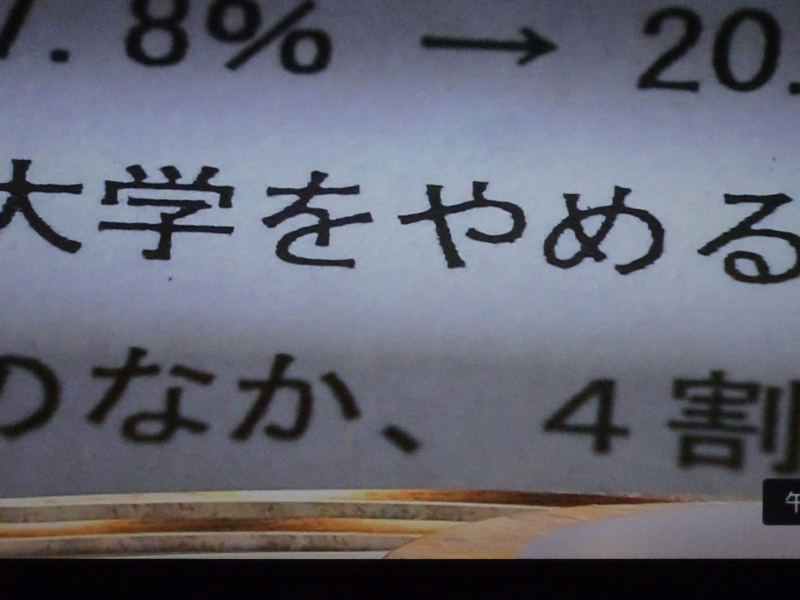 7.8% → 20.
大学をやめる
のなか、4割
午